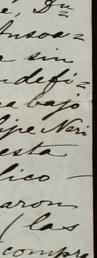 , Du
Ansoa=
sin
ndefi=
bajo
lipe Neri
esta
lico —
aron
( las
compre